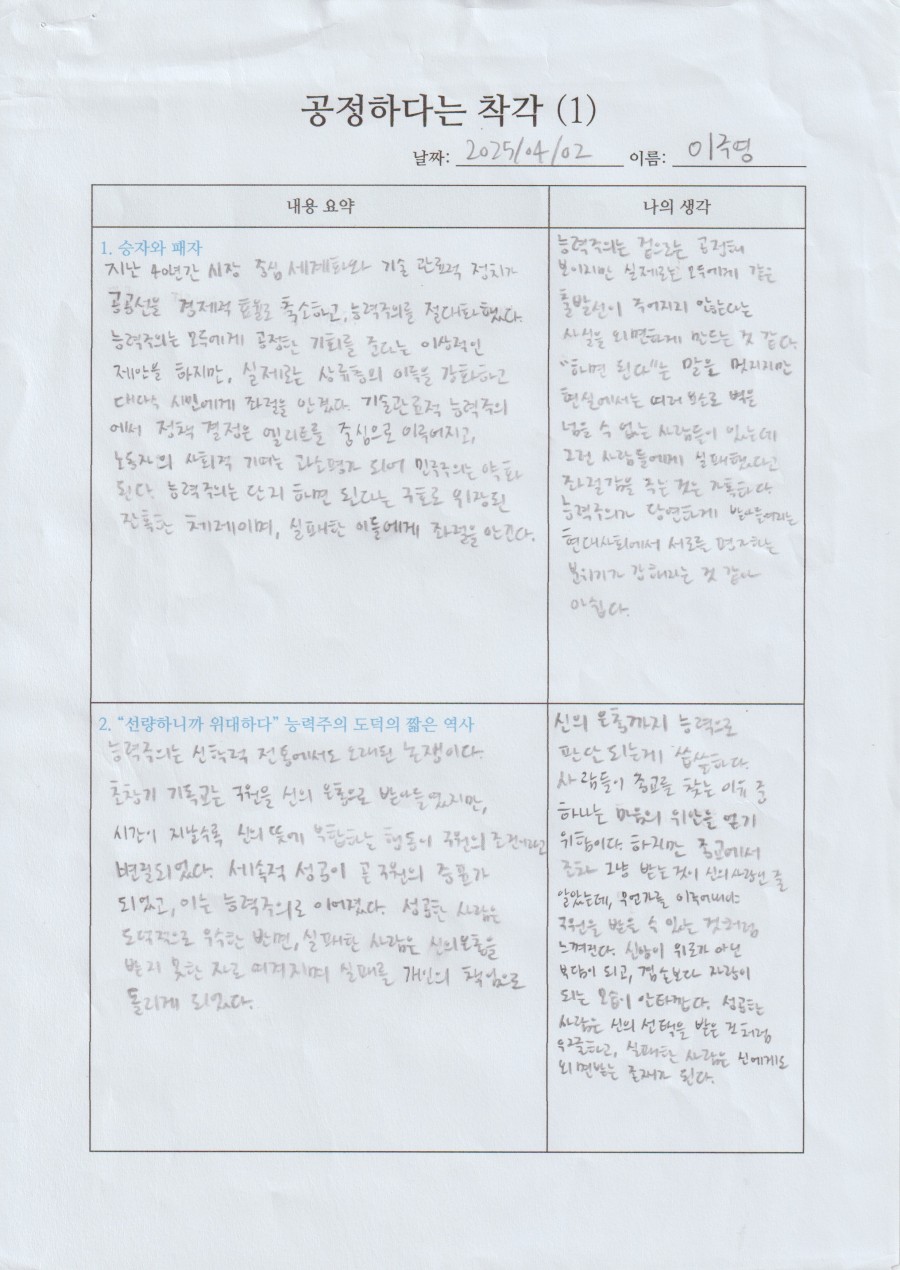 공정하다는 착각 (1)
날짜: 2025/04/02 이름: 이주영
내용 요약
나의 생각
1. 승자와 패자
지난 40년간 시장 중심 세계화와 기술 관료적 정치가
공공선을 경제적 효율로 축소하고, 능력주의를 절대화했다.
능력주의는 모두에게 공정한 기회를 준다는 이상적인
제안을 하지만, 실제로는 상류층의 이득을 강화하고
대다수 시민에게 좌절을 안겼다. 기술관료적 능력주의
에서 정책 결정은 엘리트를 중심으로 이루어지고,
노동자의 사회적 기여는 과소평가 되어 민주주의는 약화
된다. 능력주의는 단지 하면 된다는 구호로 위장된
잔혹한 체제이며, 실패한 이들에게 좌절을 안긴다.
능력주의는 겉으로는 공정해
보이지만 실제로는 모두에게 같은
출발선이 주어지지 않는다는
사실을 외면하게 만드는 것 같다.
"하면 된다"는 말은 멋지지만
현실에서는 여러 모로 벽을
넘을 수 없는 사람들이 있는데
그런 사람들에게 실패했다고
좌절감을 주는 것은 가혹하다.
능력주의가 당연하게 받아들여지는
현대사회에서 서로를 평가하는
분위기가 강해지는 것 같아
아쉽다.
2. “선량하니까 위대하다” 능력주의 도덕의 짧은 역사
능력주의는 신학적 전통에서도 오래된 논쟁이다.
초창기 기독교는 구원을 신의 은총으로 받아들였지만,
시간이 지날수록 신의 뜻에 부합하는 행동이 구원의 조건이라고
변질되었다. 세속적 성공이 곧 구원의 증표가
되었고, 이는 능력주의로 이어졌다. 성공한 사람은
도덕적으로 우수한 반면, 실패한 사람은 신의 은총을
받지 못한 자로 여겨지며 실패를 개인의 책임으로
돌리게 되었다.
신의 은총까지 능력으로
판단되는게 씁쓸하다.
사람들이 종교를 찾는 이유 중
하나는 마음의 위안을 얻기
위함이다. 하지만 종교에서
조차 그냥 받는 것이 신의 사랑인 줄
알았는데, 무언가를 이루어내야
구원을 받을 수 있는 것처럼
느껴진다. 신앙이 위로가 아닌
부담이 되고, 겸손보다 자랑이
되는 모습이 안타깝다. 성공한
사람은 신의 선택을 받은 것처럼
우쭐하고, 실패한 사람은 신에게도
외면받는 존재가 된다.